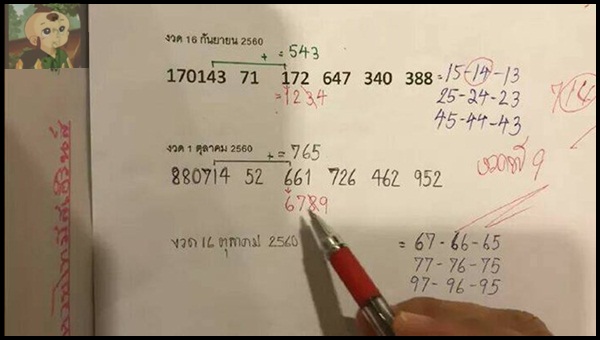 งวด 16 กันยายน 2560
+ = 543
170143 71 172 647 340 388 = 15-14-13
= 1234
25-24-23
45-44-43
งวด 1 ตุลาคม 2560
+ = 765
880714 52 661 726 462 952
6789
งวด 16 ตุลาคม 2560
= 67-66-65
77-76-75
97-96-95